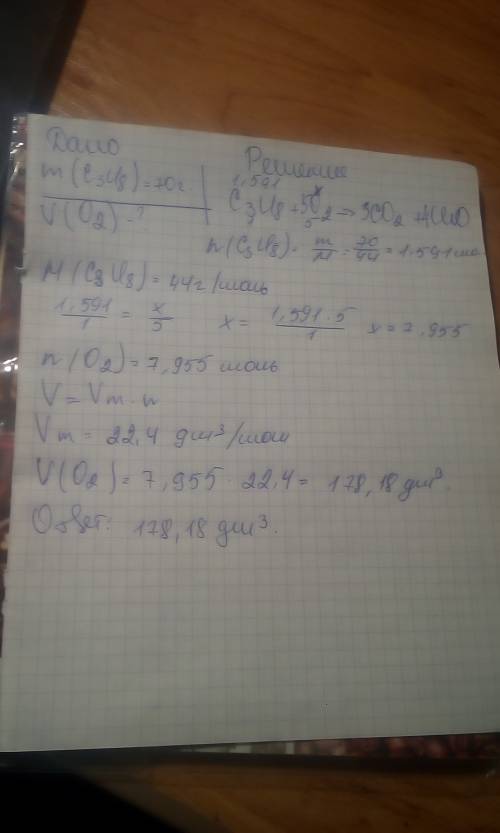 Дано
Решение
m(C3H8)=70г.
1,591 x
C3H8+5O2=>3CO2+4H2O
1 5
V(O2)-?
n(C3H8)= m/M = 70/44 = 1.591 мо
M(C3H8)=44г/моль
1,591/1 = x/5 x= 1,591·5/1 x=7,955
n(O2)=7,955 моль
V=Vm·n
Vm= 22,4 дм³/моль
V(O2)=7,955·22,4= 178,18 дм³.
Ответ: 178,18 дм³.